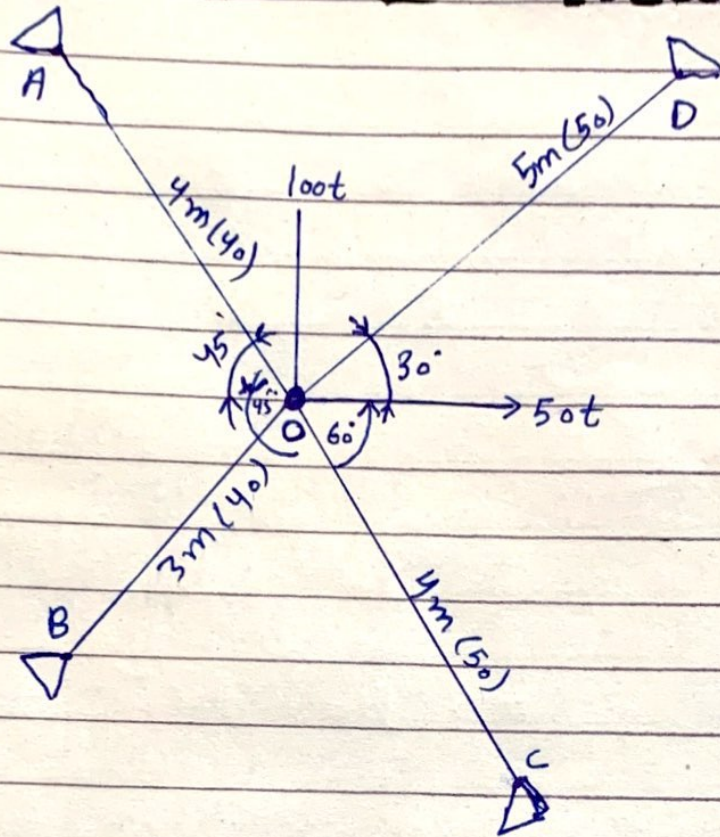 A
D
5m(50)
100t
4m(40)
45°
30°
45°
O
60°
50t
3m(40)
B
4m(50)
C